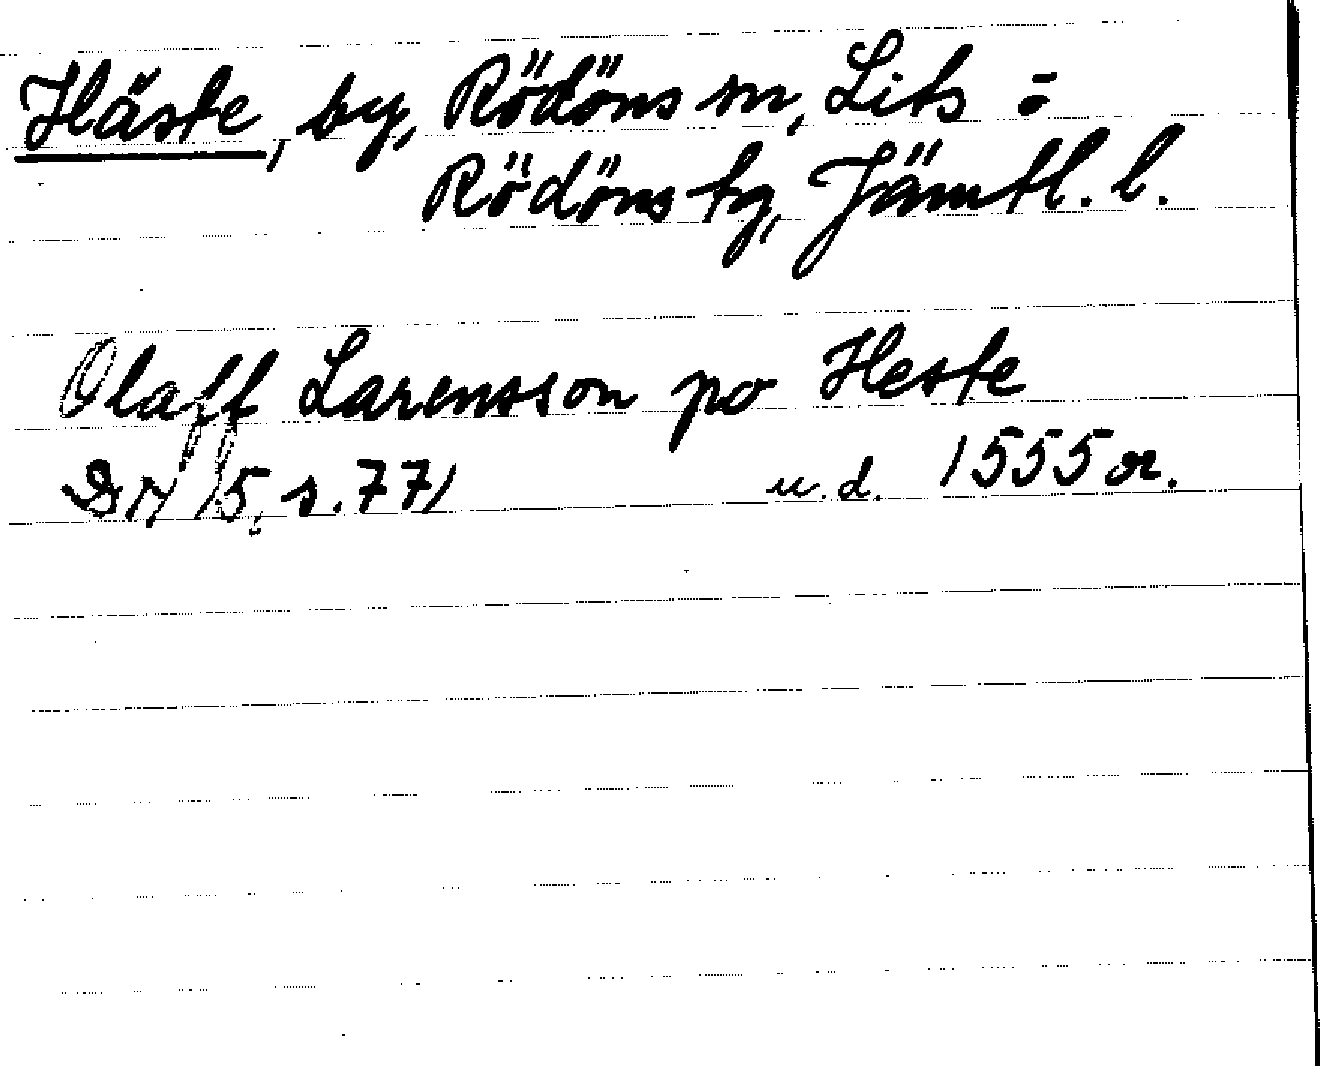 Häste, by, Rödöns sn, Lits =
Rödöns tg, Jämtl. l.
Olaff Larensson po Heste
DN 15, s. 771 u.d. 1555 or.